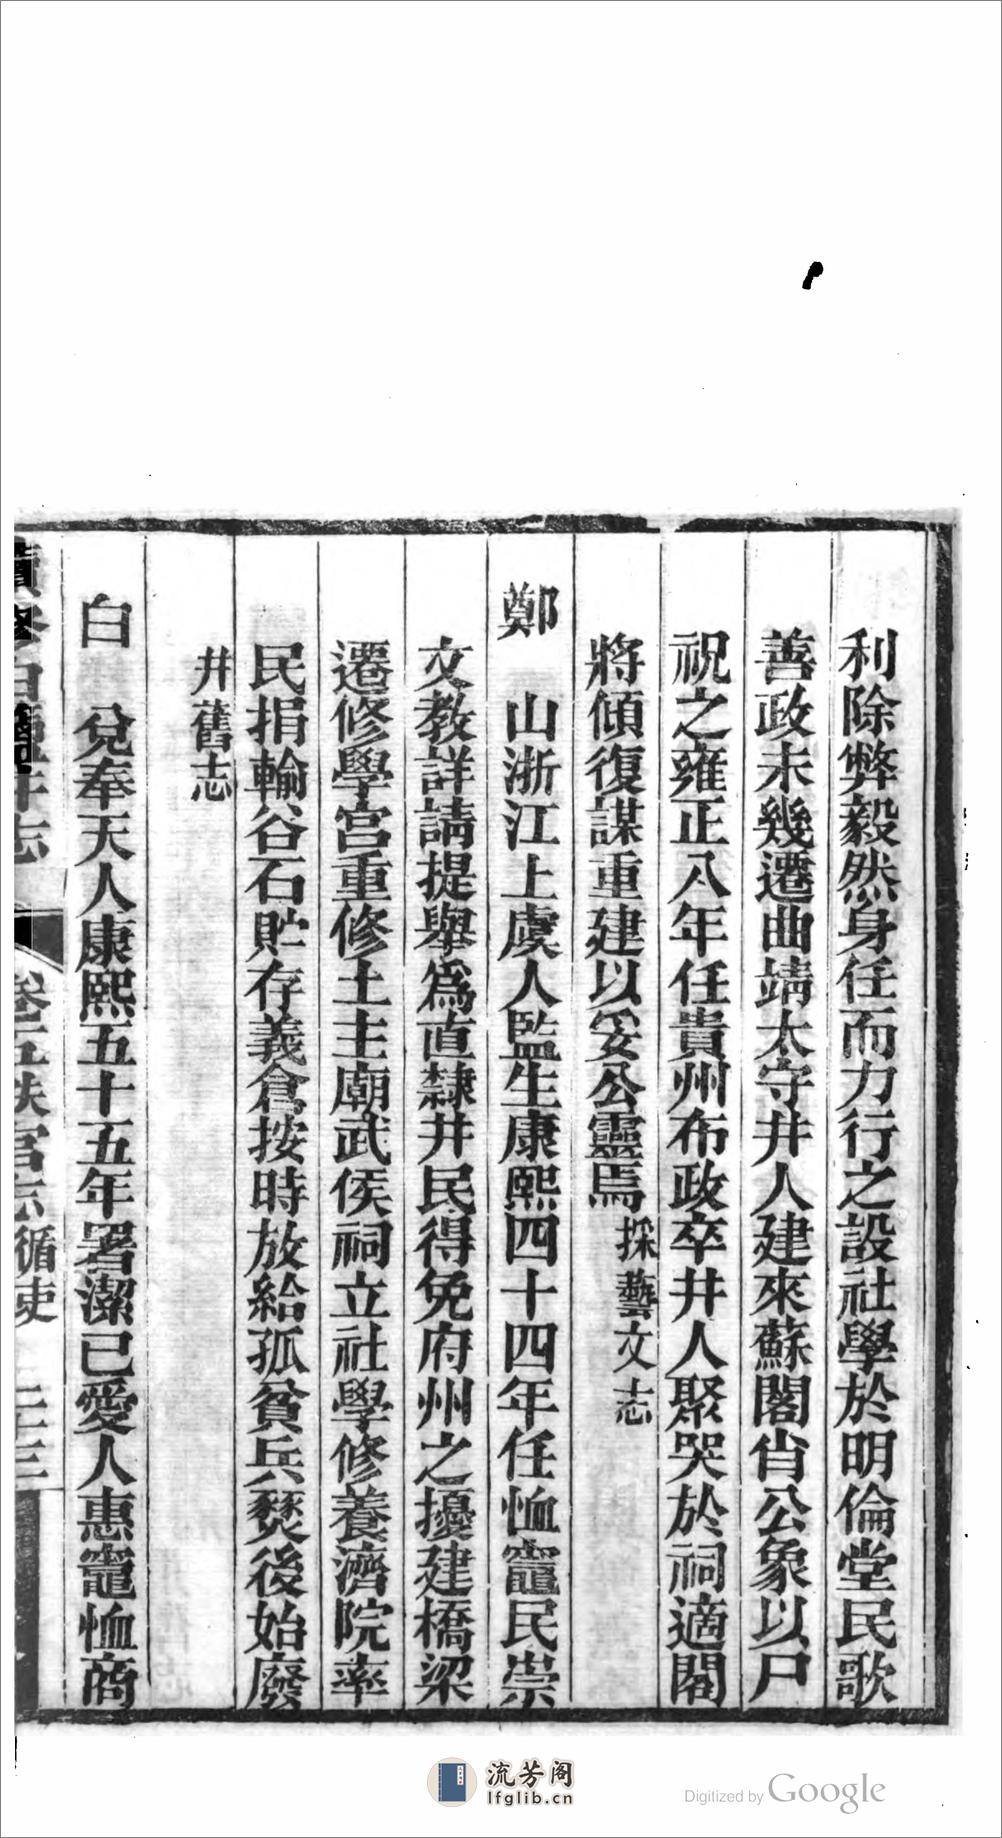 利除弊毅然身任而力行之設社學於明倫堂民歌
善政未幾遷曲靖太守井人建來蘇閣肖公象以尸
祝之雍正八年任貴州布政卒井人聚哭於祠適閣
將傾復謀重建以妥公靈焉採藝文志
鄭 山浙江上虞人監生康熙四十四年任恤竈民崇
文教詳請提舉為直隸井民得免府州之擾建橋梁
遷修學宮重修土主廟武侯祠立社學修養濟院率
民捐輸谷石貯存義倉按時放給孤貧兵燹後始廢
井舊志
白 兌奉天人康熙五十五年署潔已愛人惠竈恤商
續修白鹽井志 卷五秩官志循吏 二十三
流芳阁
lfglib.cn
Digitized by Google